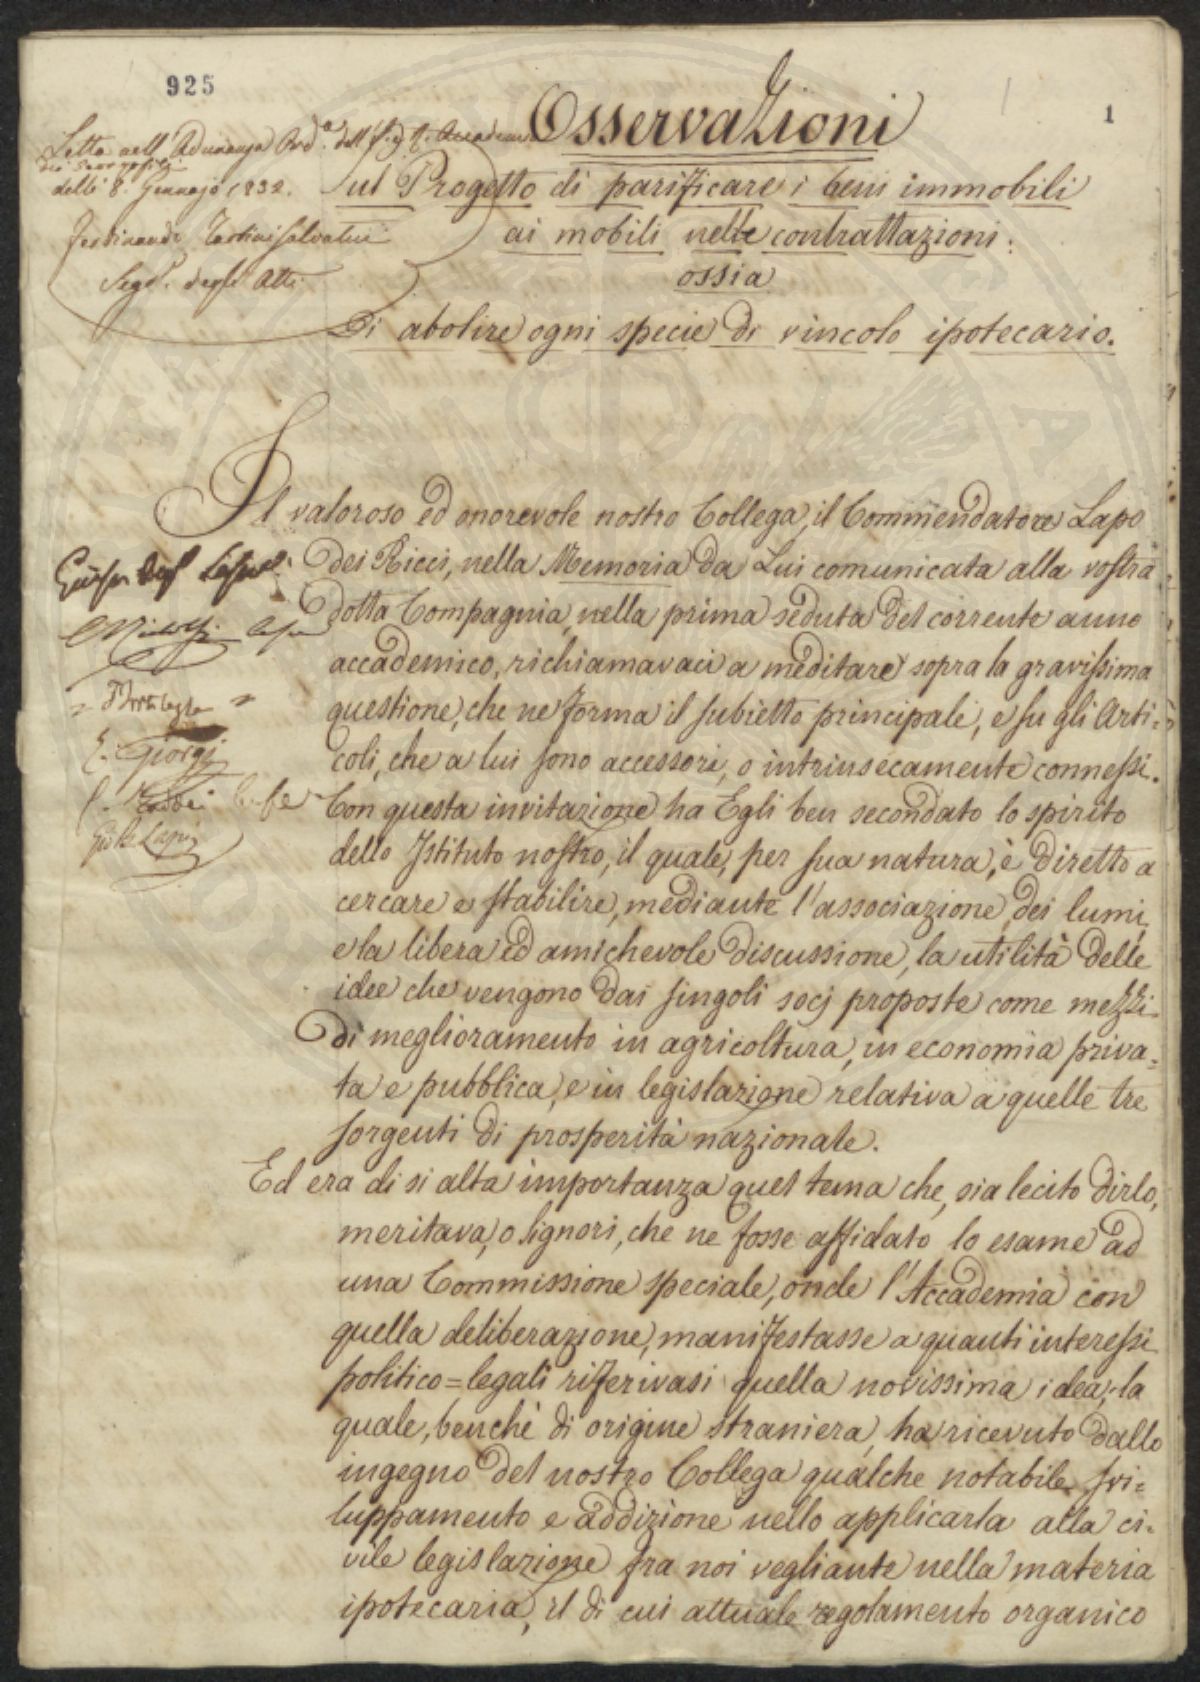 925
1
Osservazioni
Letta nell'Adunanza Ord.a dell'I. e R. Accademia
dei Georgofili
delli 8. Gennajo 1832.
Ferdinando Tartini Salvatici
Seg.o degli Atti
Sul Progetto di parificare i beni immobili
ai mobili nelle contrattazioni:
ossia
Di abolire ogni specie di vincolo ipotecario.
Il valoroso ed onorevole nostro Collega, il Commendatore Lapo
dei Ricci, nella Memoria da Lui comunicata alla vostra
dotta Compagnia, nella prima seduta del corrente anno
accademico, richiamavaci a meditare sopra la gravissima
questione, che ne forma il subietto principale, e su gli Arti=
coli, che a lui sono accessori, o intrinsecamente connessi.
Con questa invitazione ha Egli ben secondato lo spirito
dello Istituto nostro, il quale, per sua natura, è diretto a
cercare e stabilire, mediante l'associazione dei lumi,
e la libera ed amichevole discussione, la utilità delle
idee che vengono dai singoli socj proposte come mezzi
di meglioramento in agricoltura, in economia priva=
ta e pubblica, e in legislazione relativa a quelle tre
sorgenti di prosperità nazionale.
Ed era di si alta importanza quel tema che, sia lecito dirlo,
meritava, o Signori, che ne fosse affidato lo esame ad
una Commissione speciale, onde l'Accademia con
quella deliberazione, manifestasse a quanti interessi
politico=legali riferivasi quella novissima idea, la
quale, benchè di origine straniera, ha ricevuto dallo
ingegno del nostro Collega qualche notabile svi=
luppamento e addizione nello applicarla alla ci=
vile legislazione fra noi vegliante nella materia
ipotecaria, il di cui attuale regolamento organico